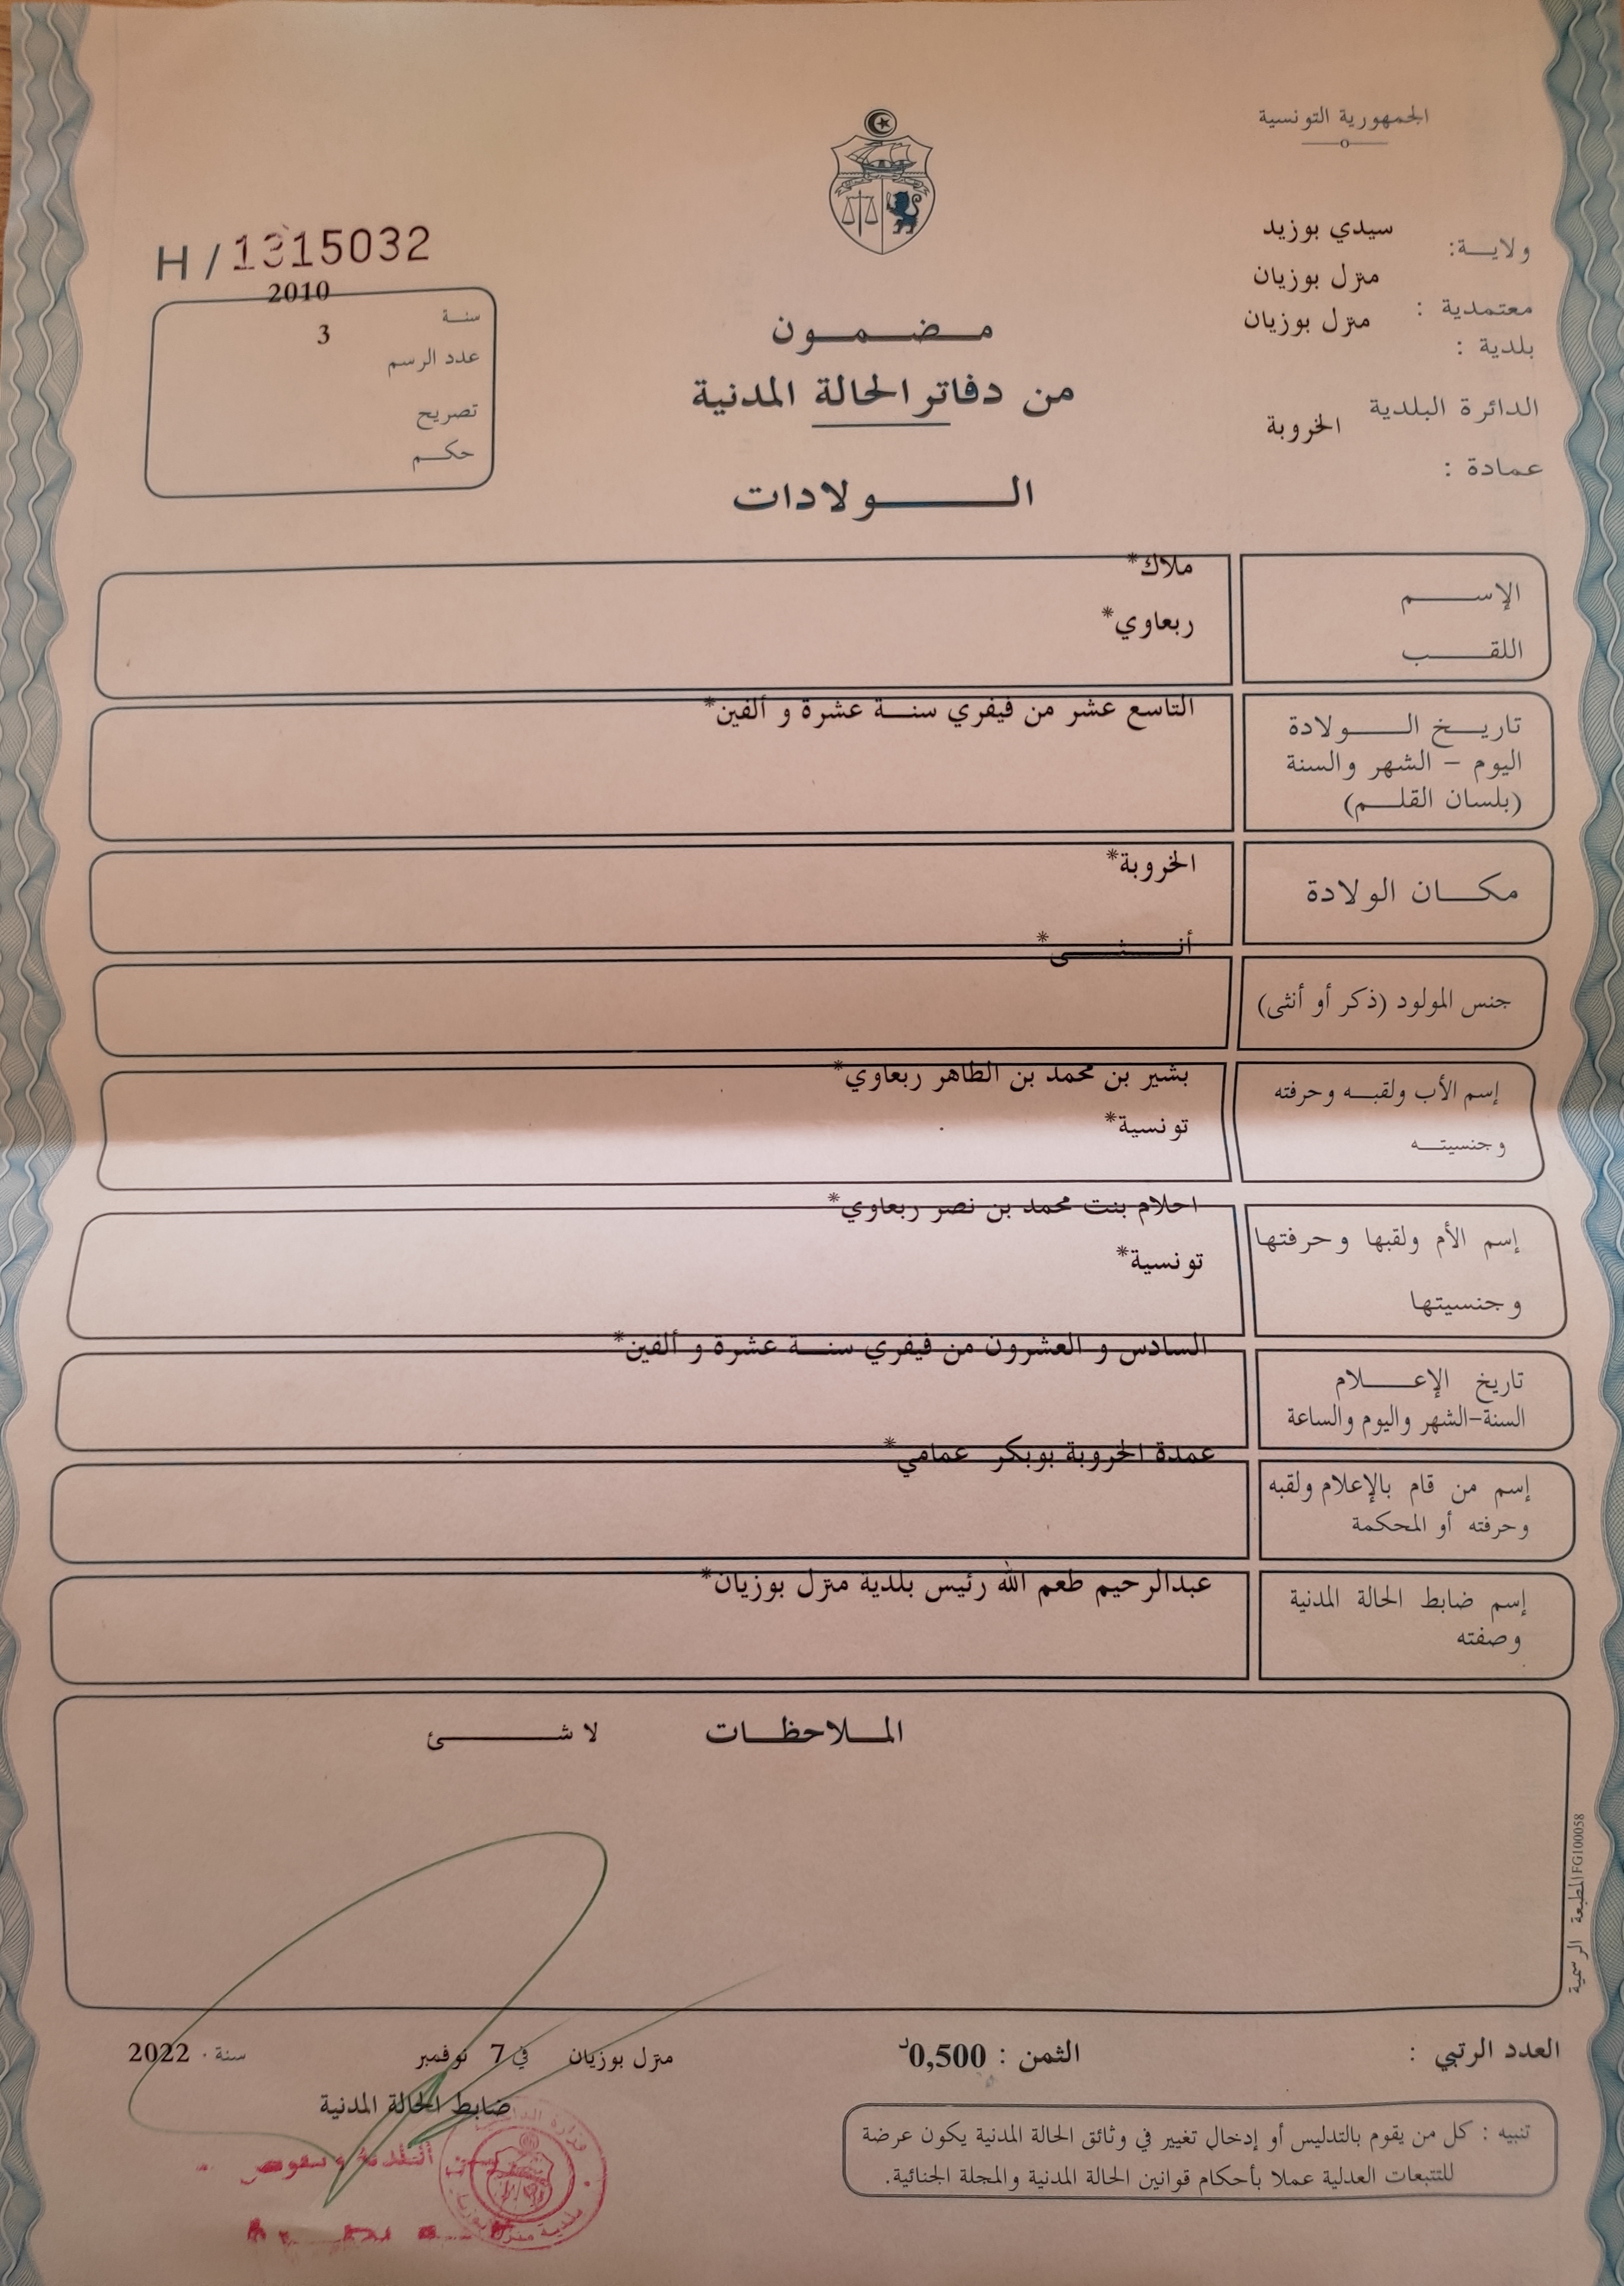 الجمهورية التونسية
ولاية: سيدي بوزيد
معتمدية : منزل بوزيان
بلدية : منزل بوزيان
الدائرة البلدية
عمادة : الخروبة
H / 1315032
سنة 2010
عدد الرسم 3
تصريح
حكم
مضمون
من دفاتر الحالة المدنية
الولادات
الإسم ملاك*
اللقب ربعاوي*
تاريخ الولادة التاسع عشر من فيفري سنة عشرة و ألفين*
اليوم - الشهر والسنة
(بلسان القلم)
مكان الولادة الخروبة*
جنس المولود (ذكر أو أنثى) أنثى*
إسم الأب ولقبه وحرفته بشير بن محمد بن الطاهر ربعاوي*
وجنسيته تونسية*
إسم الأم ولقبها وحرفتها احلام بنت محمد بن نصر ربعاوي*
وجنسيتها تونسية*
تاريخ الإعلام السادس و العشرون من فيفري سنة عشرة و ألفين*
السنة-الشهر واليوم والساعة
إسم من قام بالإعلام ولقبه عمدة الخروبة بوبكر عمامي*
وحرفته أو المحكمة
إسم ضابط الحالة المدنية عبدالرحيم طعم الله رئيس بلدية منزل بوزيان*
وصفته
الملاحظات لا شئ
المطبعة الرسمية FG100058
العدد الرتبي :
الثمن : 0,500د
منزل بوزيان في 7 نوفمبر سنة 2022
ضابط الحالة المدنية
تنبيه : كل من يقوم بالتدليس أو إدخال تغيير في وثائق الحالة المدنية يكون عرضة
للتتبعات العدلية عملا بأحكام قوانين الحالة المدنية والمجلة الجنائية.